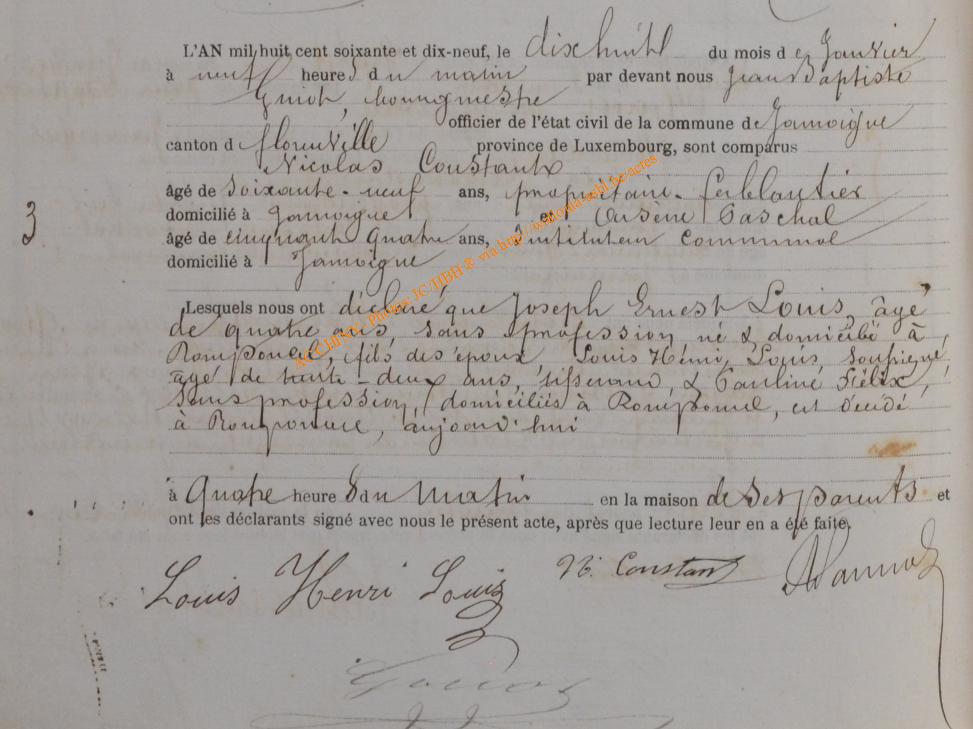 L'AN mil huit cent soixante et dix-neuf, le dix huit du mois de Janvier
à neuf heures du matin par devant nous Jean Baptiste
bourgmestre
officier de l'état civil de la commune de Jamoigne
canton d florenville province de Luxembourg, sont comparus
Nicolas Constant
âgé de soixante-neuf ans, propriétaire-ferblantier
domicilié à Jamoigne et Arsène Paschal
3
âgé de cinquante quatre ans, Instituteur communal
domicilié à Jamoigne
ARCHIVES Photos JC/HBH ® via http://wallonia-asbl.be/actes
Lesquels nous ont déclaré que Joseph Ernest Louis, âgé
de quatre ans, sans profession, né & domicilié à
Romponcel, fils des époux Louis Henri Louis, soussigné,
âgé de trente-deux ans, tisserand, & Pauline Félix,
sans profession, domiciliés à Romponcel, est décédé
à Romponcel, aujourd'hui
à Quatre heures du matin en la maison de ses parents et
ont les déclarants signé avec nous le présent acte, après que lecture leur en a été faite,
Louis Henri Louis N. Constant